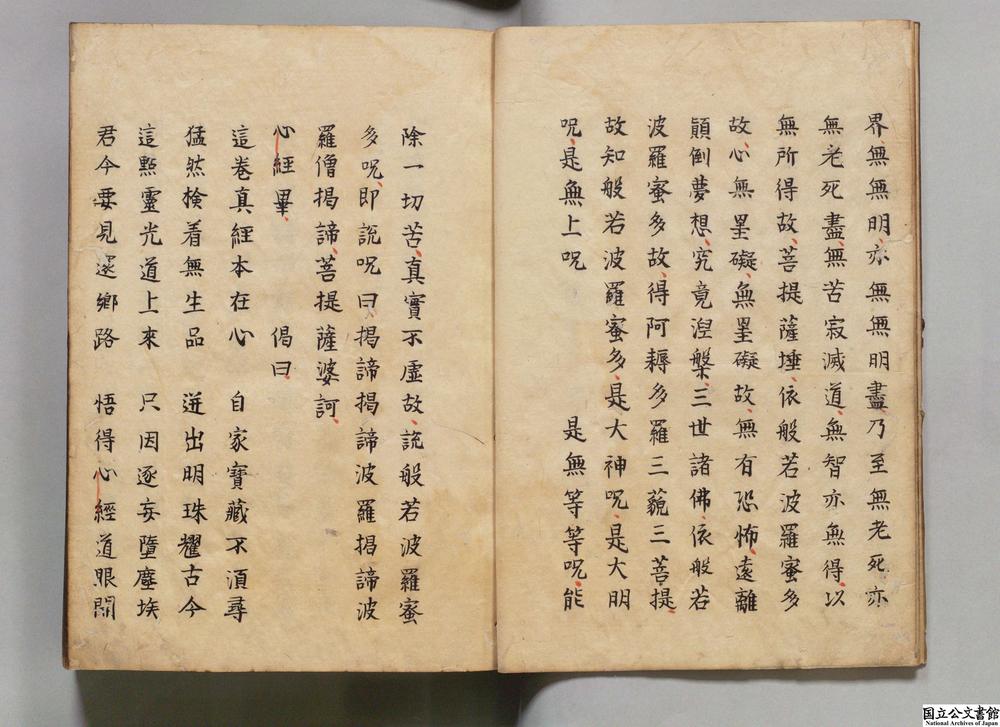 界無無明亦無無明盡乃至無老死亦
無老死盡無苦寂滅道無智亦無得以
無所得故菩提薩埵依般若波羅蜜多
故心無罣礙無罣礙故無有恐怖遠離
顛倒夢想究竟涅槃三世諸佛依般若
波羅蜜多故得阿耨多羅三藐三菩提
故知般若波羅蜜多是大神呪是大明
呪是無上呪 是無等等呪能
除一切苦真實不虛故說般若波羅蜜
多呪即說呪曰揭諦揭諦波羅揭諦波
羅僧揭諦菩提薩婆訶
心經畢 偈曰
這卷真經本在心 自家寶藏不湏尋
猛然検着無生品 迸出明珠耀古今
這㸃靈光道上來 只因逐妄墮塵埃
君今要見還鄉路 悟得心經道眼開
国立公文書館
National Archives of Japan